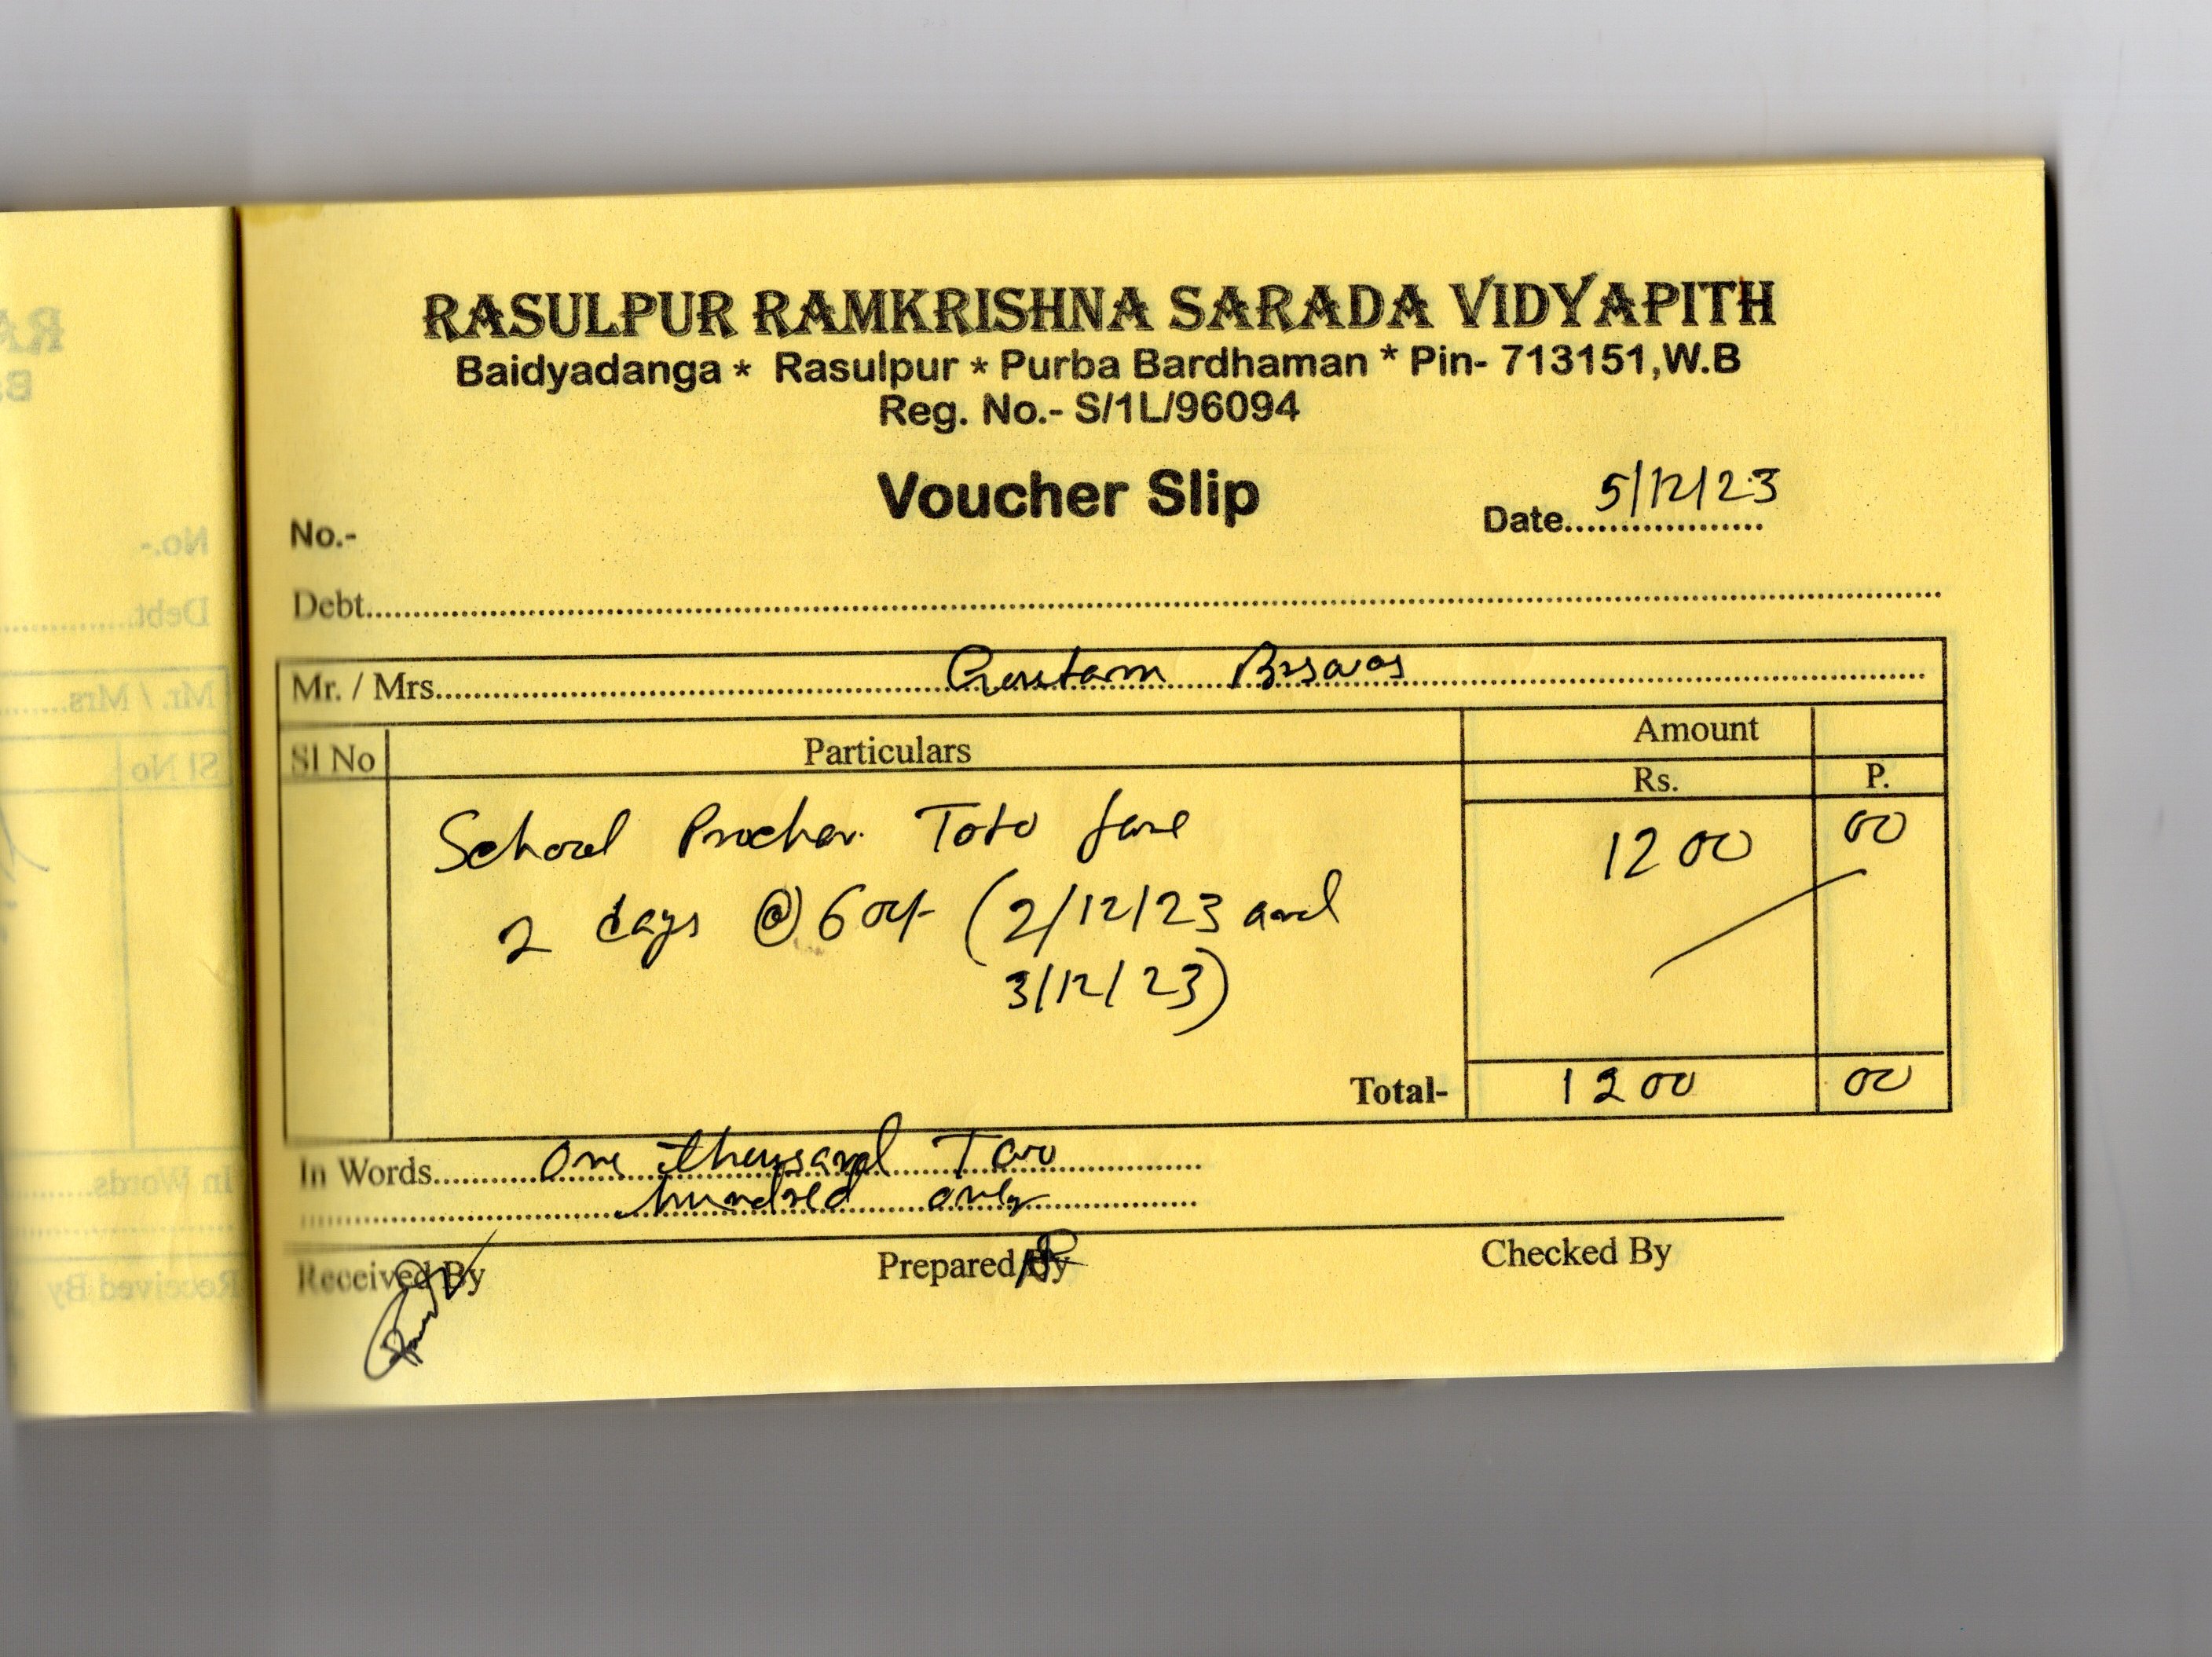 RASULPUR RAMKRISHNA SARADA VIDYAPITH
Baidyadanga * Rasulpur * Purba Bardhaman * Pin- 713151,W.B
Reg. No.- S/1L/96094
Voucher Slip
No.-
Date 5/12/23
Debt
Mr. / Mrs. Goutam Biswas
Sl No Particulars Amount
Rs. P.
School Prochar Toto fare 1200 00
2 days @ 600/- (2/12/23 and
3/12/23)
Total- 1200 00
In Words One thousand Two
hundred only
Received By Prepared By Checked By